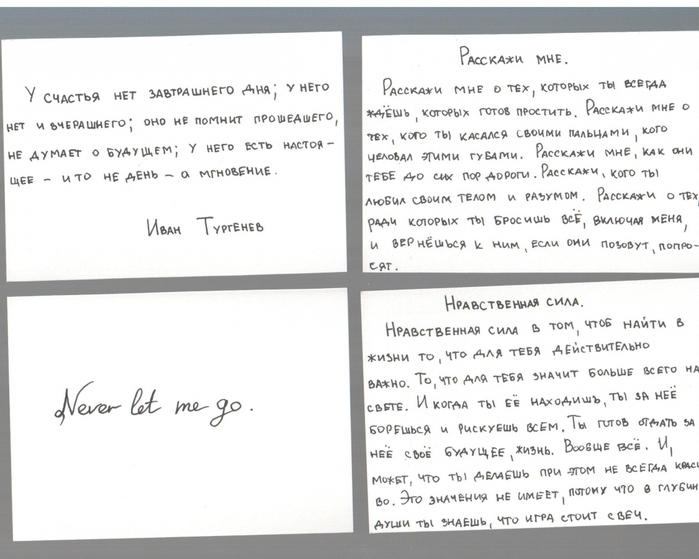 У счастья нет завтрашнего дня; у него
нет и вчерашнего; оно не помнит прошедшего,
не думает о будущем; у него есть настоя-
щее – и то не день – а мгновение.
Иван Тургенев
Расскажи мне.
Расскажи мне о тех, которых ты всегда
ждёшь, которых готов простить. Расскажи мне о
тех, кого ты касался своими пальцами, кого
целовал этими губами. Расскажи мне, как они
тебе до сих пор дороги. Расскажи, кого ты
любил своим телом и разумом. Расскажи о тех,
ради которых ты бросишь всё, включая меня,
и вернёшься к ним, если они позовут, попро-
сят.
Never let me go.
Нравственная сила.
Нравственная сила в том, чтоб найти в
жизни то, что для тебя действительно
важно. То, что для тебя значит больше всего на
свете. И когда ты её находишь, ты за неё
борешься и рискуешь всем. Ты готов отдать за
неё своё будущее, жизнь. Вообще всё. И,
может, что ты делаешь при этом не всегда краси
во. Это значения не имеет, потому что в глубин
души ты знаешь, что игра стоит свеч.